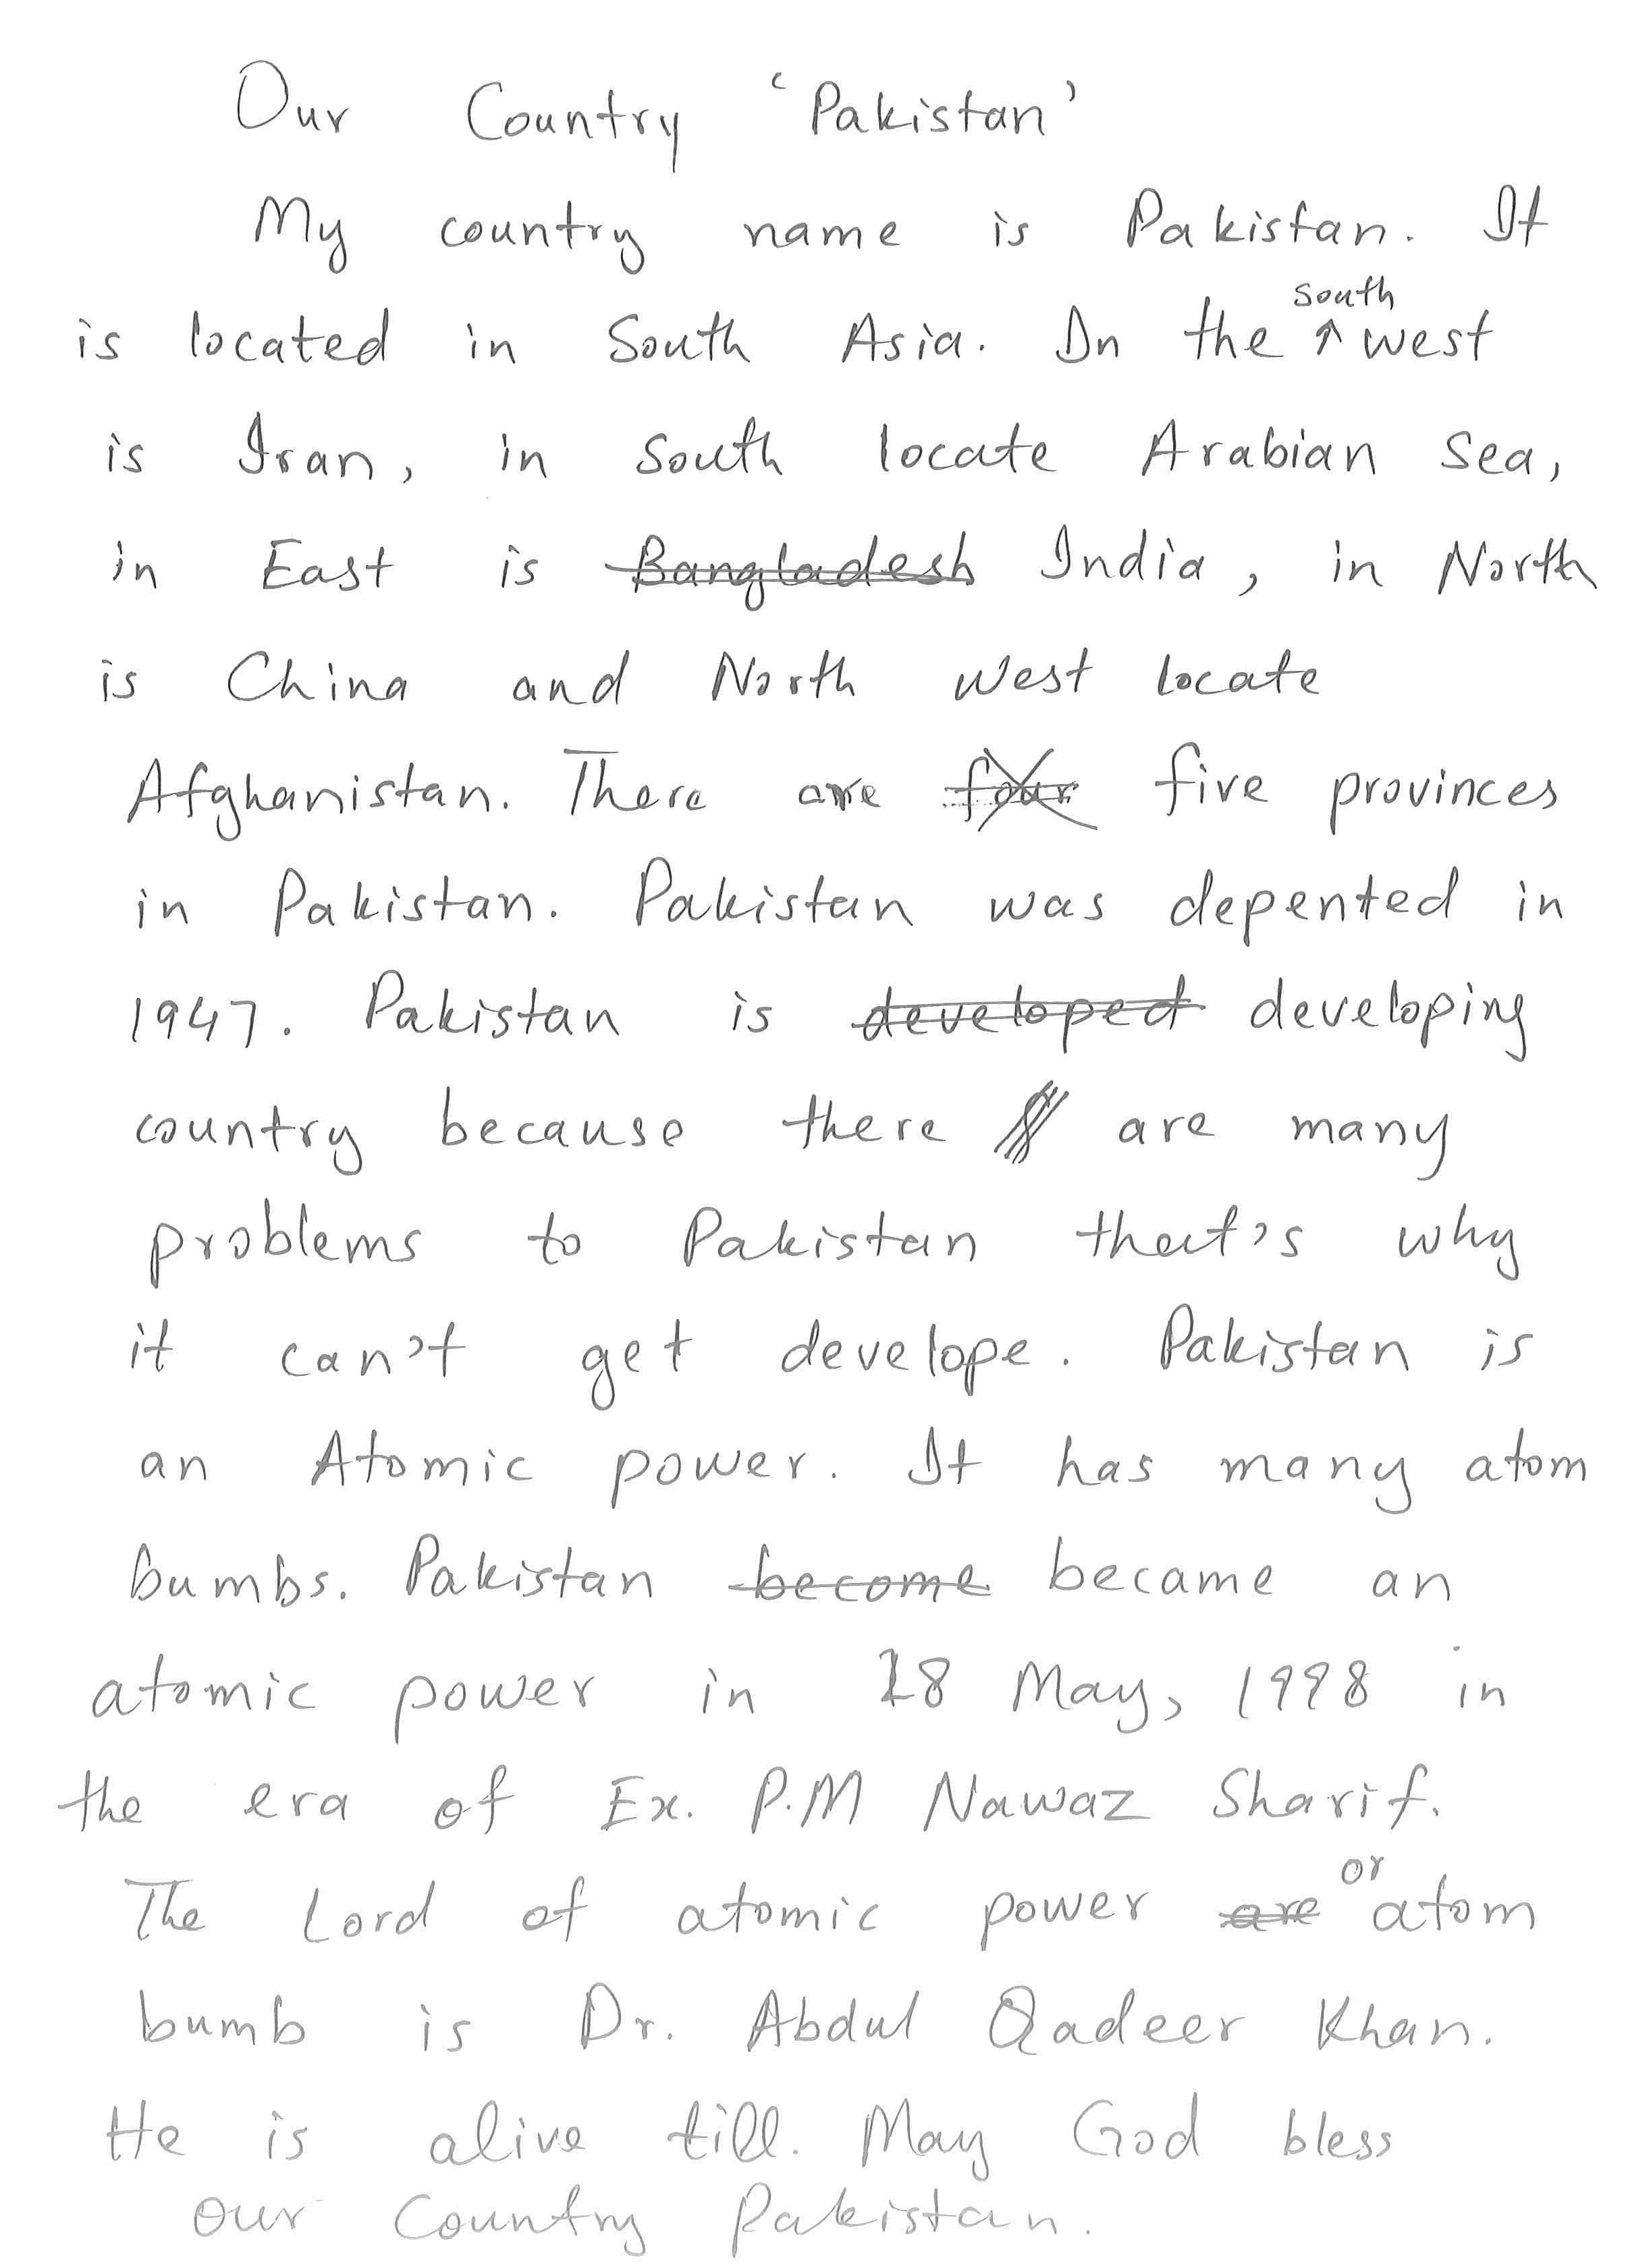 Our Country 'Pakistan'
My country name is Pakistan. It
is located in South Asia. In the south west
is Iran, in south locate Arabian sea,
in East is Bangladesh India, in North
is China and North west locate
Afghanistan. There are four five provinces
in Pakistan. Pakistan was depented in
1947. Pakistan is developed developing
country because there are many
problems to Pakistan that's why
it can't get develope. Pakistan is
an Atomic power. It has many atom
bumbs. Pakistan become became an
atomic power in 28 May, 1998 in
the era of Ex. P.M Nawaz Sharif.
The Lord of atomic power are or atom
bumb is Dr. Abdul Qadeer Khan.
He is alive till. May God bless
our Country Pakistan.